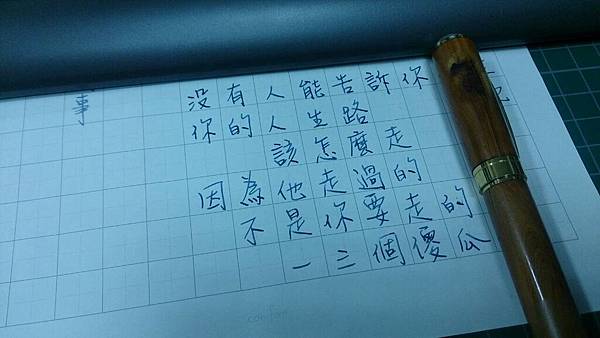 沒有人能告訴你
你的人生路
該怎麼走
因為他走過的
不是你要走的
一三個傻瓜
事